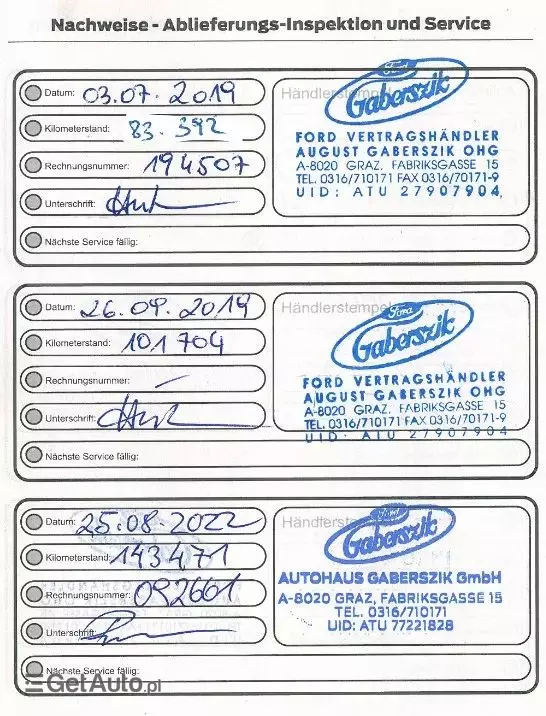 Nachweise - Ablieferungs-Inspektion und Service
Datum: 03.07.2019
Kilometerstand: 83.392
Rechnungsnummer: 194507
Unterschrift:
Nächste Service fällig:
Händlerstempel
Ford
Gaberszik
FORD VERTRAGSHÄNDLER
AUGUST GABERSZIK OHG
A-8020 GRAZ, FABRIKSGASSE 15
TEL. 0316/710171 FAX 0316/70171-9
UID: ATU 27907904,
Datum: 26.09.2019
Kilometerstand: 101704
Rechnungsnummer: –
Unterschrift:
Nächste Service fällig:
Händlerstempel
Ford
Gaberszik
FORD VERTRAGSHÄNDLER
AUGUST GABERSZIK OHG
A-8020 GRAZ, FABRIKSGASSE 15
TEL. 0316/710171 FAX 0316/70171-9
UID: ATU 27907904
Datum: 25.08-2022
Kilometerstand: 143471
Rechnungsnummer: 092661
Unterschrift:
Nächste Service fällig:
Händlerstempel
Ford
Gaberszik
AUTOHAUS GABERSZIK GmbH
A-8020 GRAZ, FABRIKSGASSE 15
TEL. 0316/710171
UID: ATU 77221828
GetAuto.pl